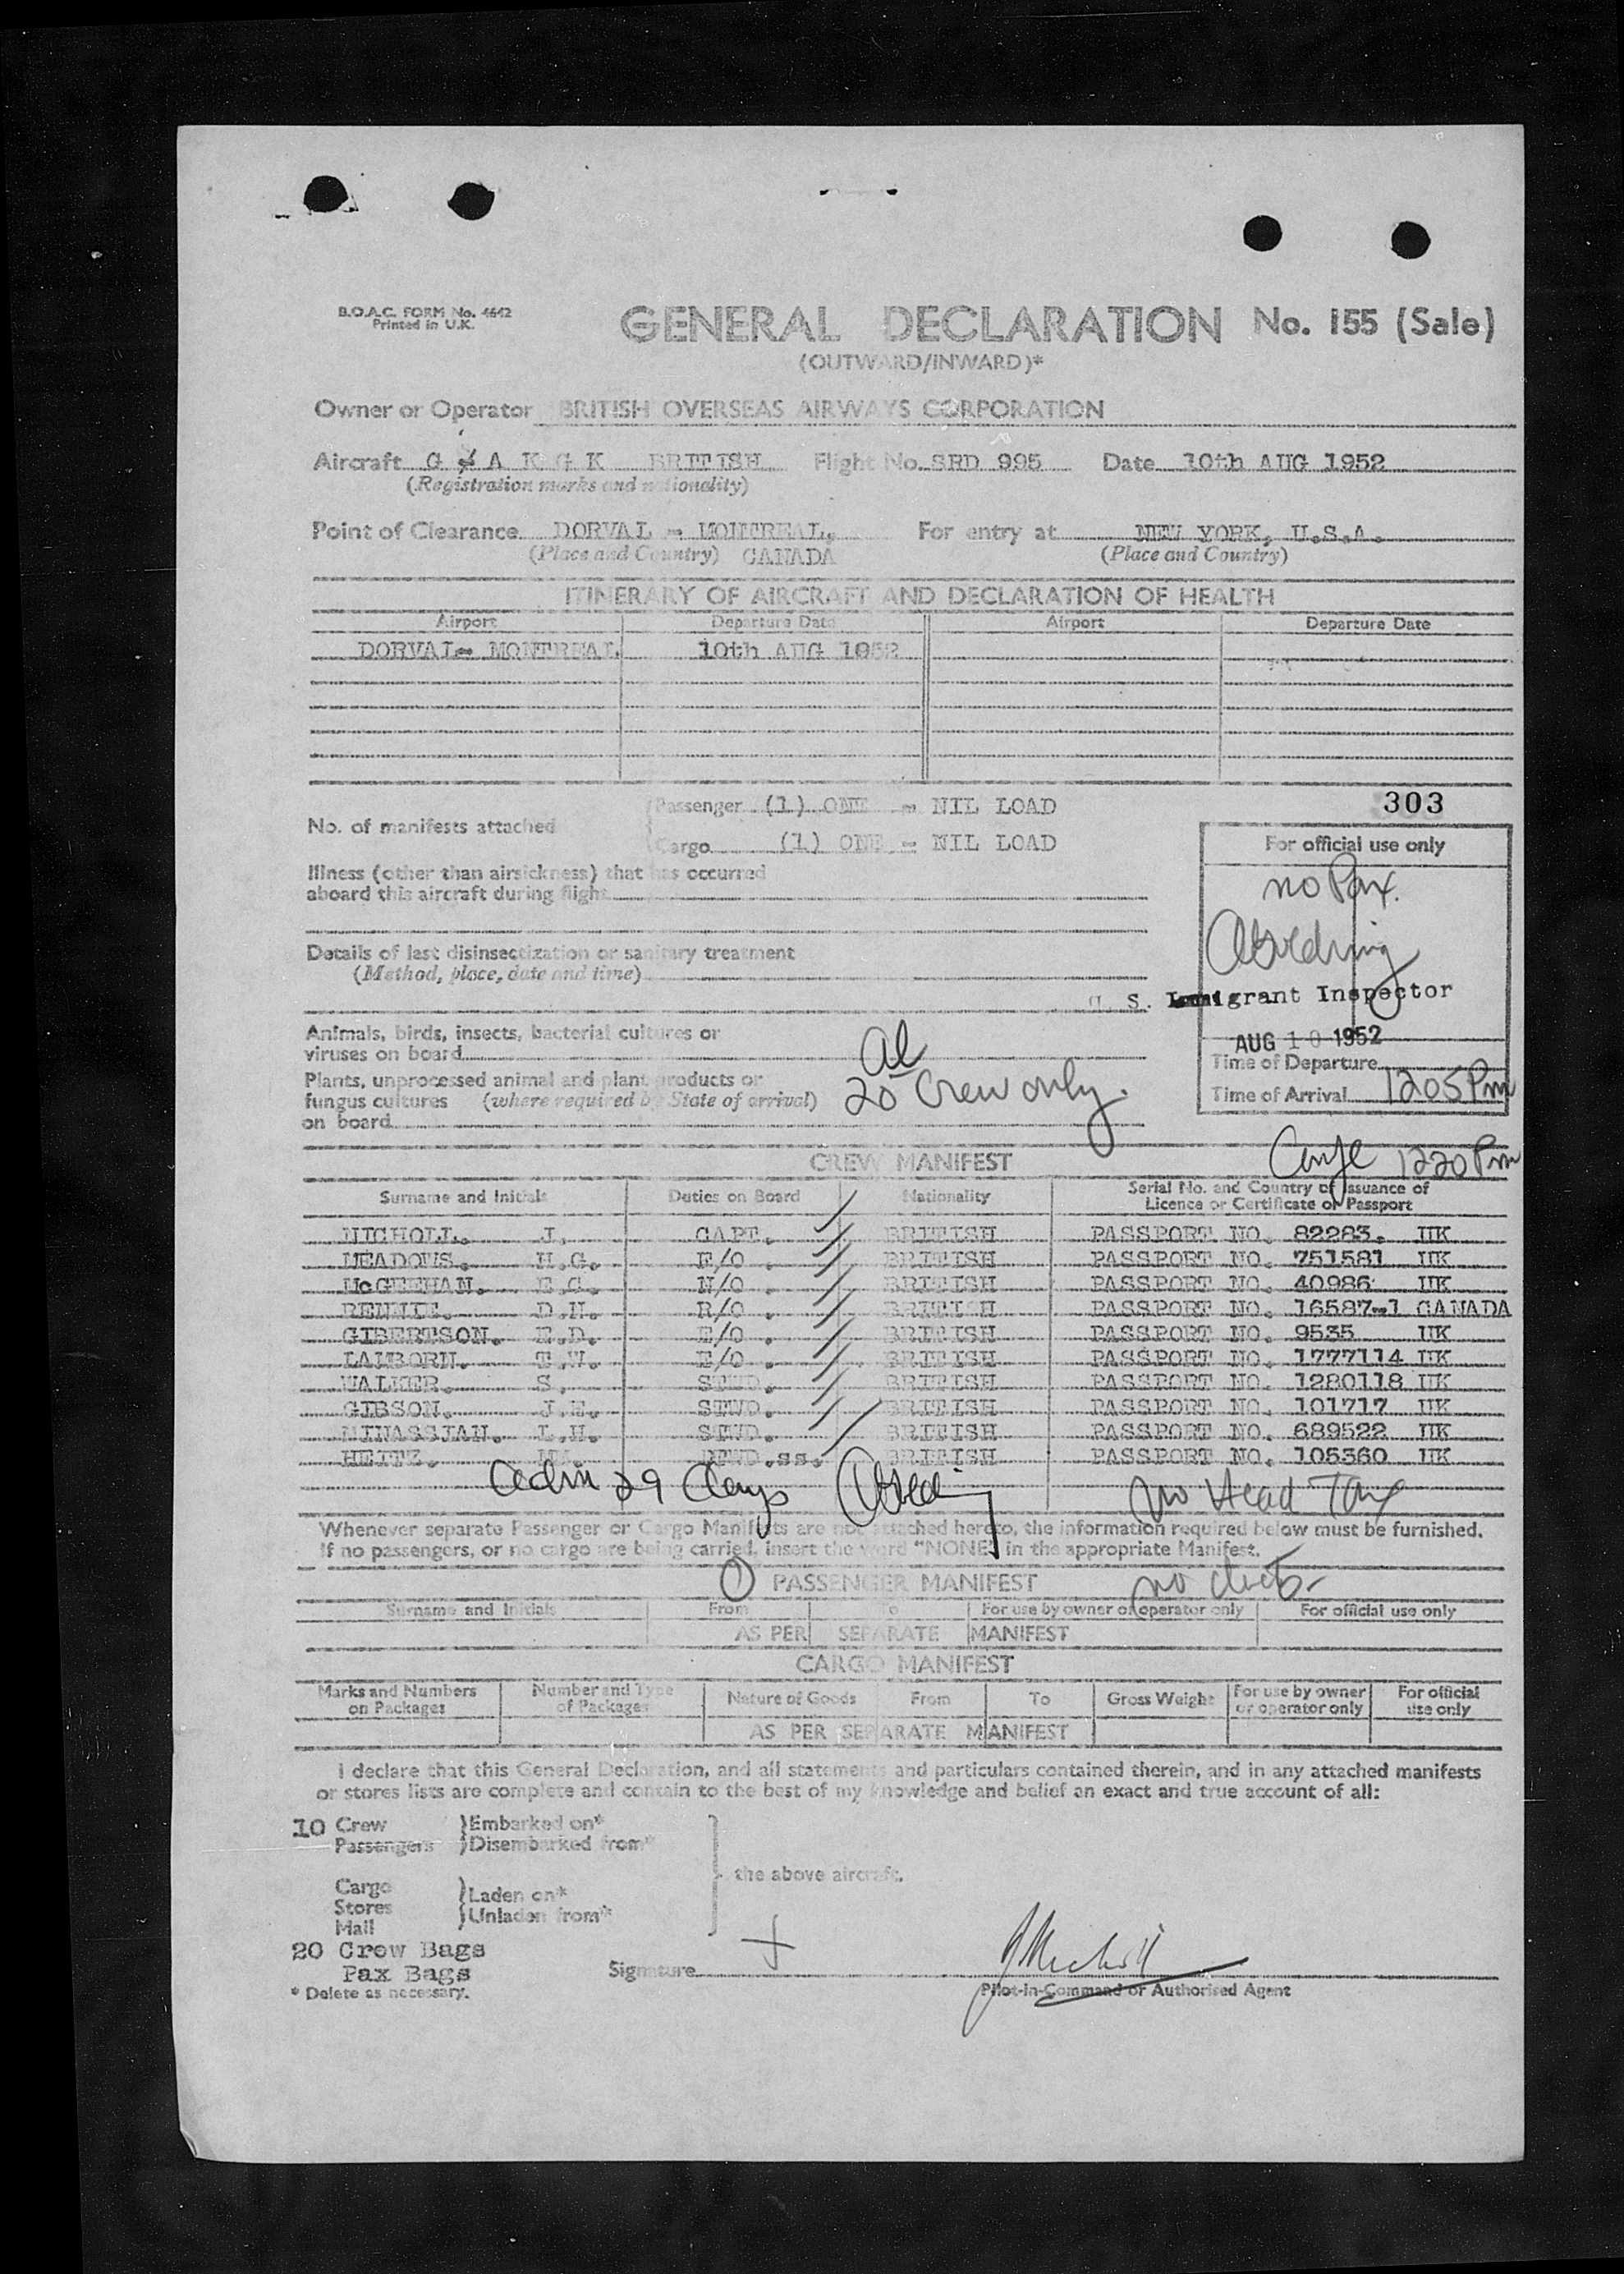 B.O.A.C. FORM No. 4642
Printed in U.K.
GENERAL DECLARATION No. 155 (Sale)
(OUTWARD/INWARD)*
Owner or Operator BRITISH OVERSEAS AIRWAYS CORPORATION
Aircraft G A K G K BRITISH Flight No. SRD 995 Date 10th AUG 1952
(Registration marks and nationality)
Point of Clearance DORVAL - MONTREAL, For entry at NEW YORK, U.S.A.
(Place and Country) CANADA (Place and Country)
ITINERARY OF AIRCRAFT AND DECLARATION OF HEALTH
Airport Departure Date Airport Departure Date
DORVAL- MONTREAL 10th AUG 1952
303
No. of manifests attached
Passenger (1) ONE - NIL LOAD
Cargo (1) ONE - NIL LOAD
For official use only
no Pax.
Illness (other than airsickness) that has occurred
aboard this aircraft during flight
Details of last disinsectization or sanitary treatment
(Method, place, date and time)
U. S. Immigrant Inspector
AUG 10 1952
Animals, birds, insects, bacterial cultures or
viruses on board
Time of Departure
Time of Arrival 1205 Pm
Plants, unprocessed animal and plant products or
fungus cultures (where required by State of arrival)
on board
20 Crew only.
1220 Pm
CREW MANIFEST
Surname and Initials Duties on Board Nationality Serial No. and Country of Issuance of
Licence or Certificate or Passport
NICHOLL. J. CAPT. BRITISH PASSPORT NO. 82283. UK
MEADOWS. H.G. F/O . BRITISH PASSPORT NO. 751581 UK
McGEEHAN. E.G. N/O . BRITISH PASSPORT NO. 40986 UK
RENNIE. D.H. R/O . BRITISH PASSPORT NO. 16587-1 CANADA
GIBERTSON. E.D. E/O . BRITISH PASSPORT NO. 9535 UK
LAMBORN. T.W. E/O . BRITISH PASSPORT NO. 1777114 UK
WALKER. S. STWD. BRITISH PASSPORT NO. 1280118 UK
GIBSON. J.E. STWD. BRITISH PASSPORT NO. 101717 UK
MINASSIAN. L.H. STWD. BRITISH PASSPORT NO. 689522 UK
HEITZ. STWD.ss. BRITISH PASSPORT NO. 105360 UK
Adm 29 days no Head Tax
Whenever separate Passenger or Cargo Manifests are not attached hereto, the information required below must be furnished.
If no passengers, or no cargo are being carried, insert the word "NONE" in the appropriate Manifest.
PASSENGER MANIFEST
Surname and Initials From To For use by owner or operator only For official use only
AS PER SEPARATE MANIFEST
CARGO MANIFEST
Marks and Numbers on Packages Number and Type of Packages Nature of Goods From To Gross Weight For use by owner or operator only For official use only
AS PER SEPARATE MANIFEST
I declare that this General Declaration, and all statements and particulars contained therein, and in any attached manifests
or stores lists are complete and contain to the best of my knowledge and belief an exact and true account of all:
10 Crew Embarked on*
Passengers Disembarked from*
the above aircraft.
Cargo
Stores Laden on*
Mail Unladen from*
20 Crew Bags
Pax Bags
* Delete as necessary.
Signature J Nicholl
Pilot-in-Command or Authorised Agent